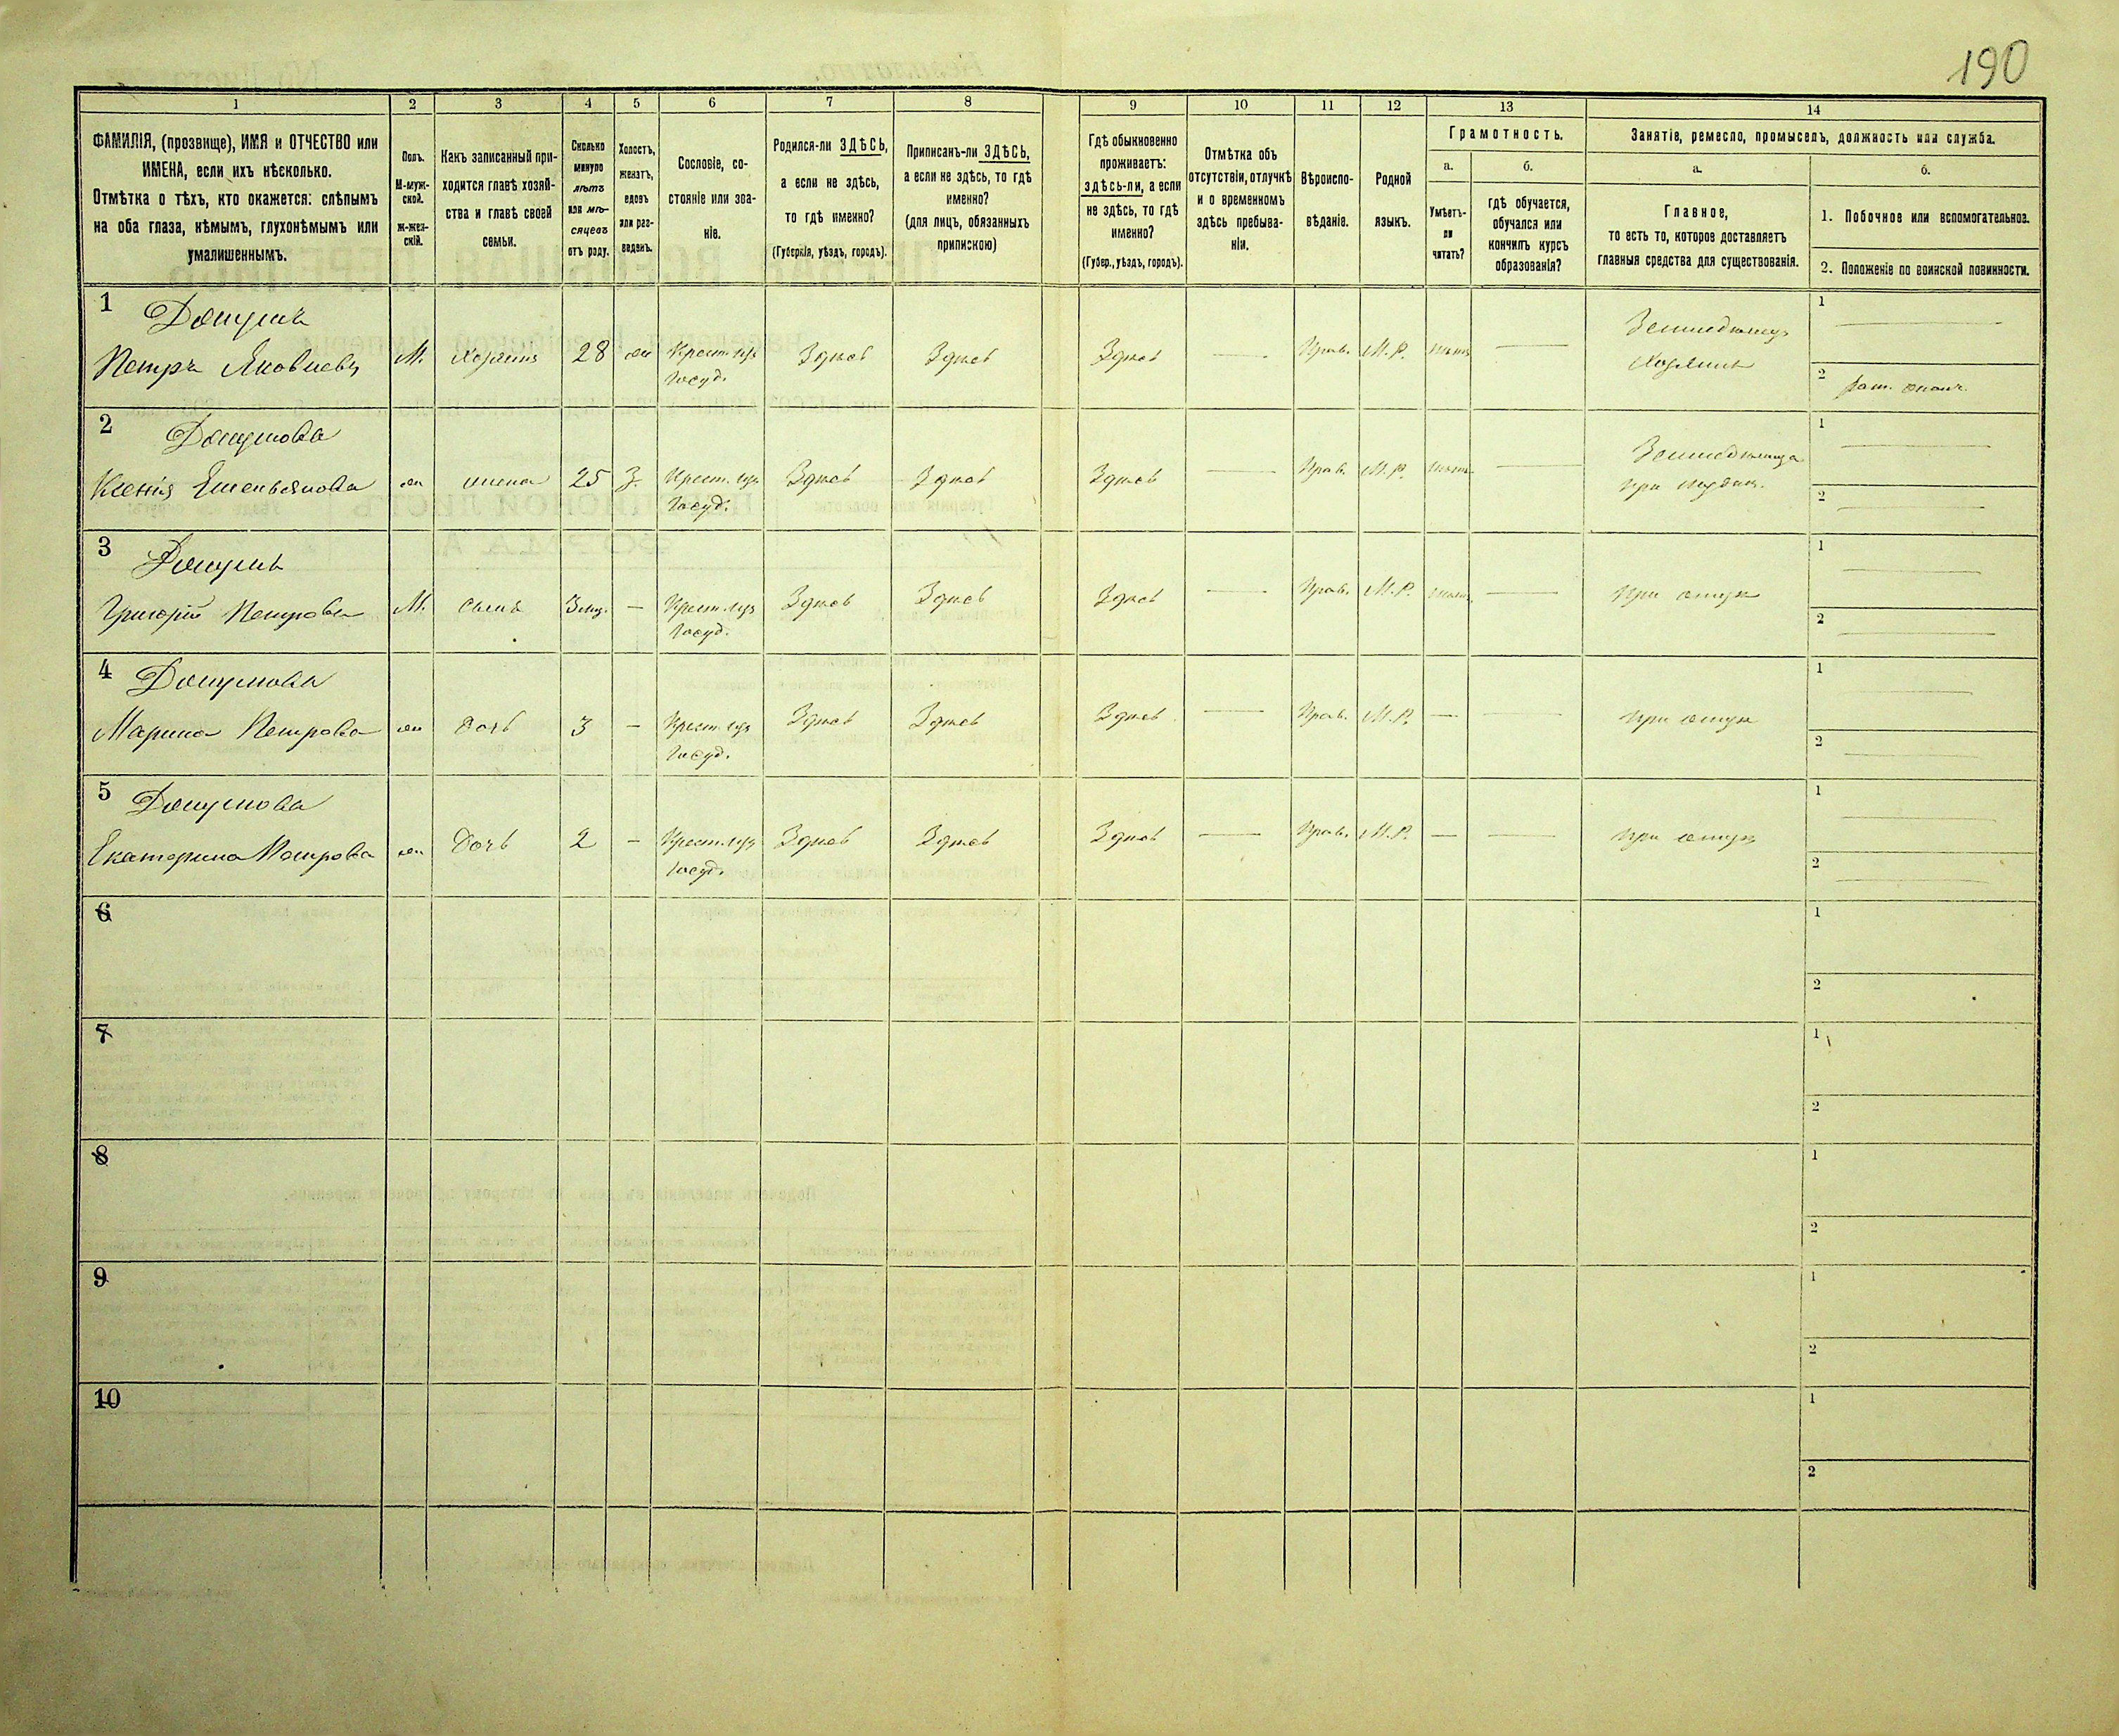 190
1 2 3 4 5 6 7 8 9 10 11 12 13 14
ФАМИЛІЯ, (прозвище), ИМЯ и ОТЧЕСТВО или
ИМЕНА, если ихъ нѣсколько.
Отмѣтка о тѣхъ, кто окажется: слѣпымъ
на оба глаза, нѣмымъ, глухонѣмымъ или
умалишеннымъ.
Полъ.
М-муж-
ской.
ж-жен-
скій.
Какъ записанный при-
ходится главѣ хозяй-
ства и главѣ своей
семьи.
Сколько
минуло
лѣтъ
или мѣ-
сяцевъ
отъ роду.
Холостъ,
женатъ,
вдовъ
или раз-
веденъ.
Сословіе, со-
стояніе или зва-
ніе.
Родился-ли ЗДѢСЬ,
а если не здѣсь,
то гдѣ именно?
(Губернія, уѣздъ, городъ).
Приписанъ-ли ЗДѢСЬ,
а если не здѣсь, то гдѣ
именно?
(для лицъ, обязанныхъ
припискою)
Гдѣ обыкновенно
проживаетъ:
здѣсь-ли, а если
не здѣсь, то гдѣ
именно?
(Губер., уѣздъ, городъ).
Отмѣтка объ
отсутствіи, отлучкѣ
и о временномъ
здѣсь пребыва-
ніи.
Вѣроиспо-
вѣданіе.
Родной
языкъ.
Грамотность.
а.
Умѣетъ-
ли
читать?
б.
гдѣ обучается,
обучался или
кончилъ курсъ
образованія?
Занятіе, ремесло, промыселъ, должность или служба.
а.
Главное,
то есть то, которое доставляетъ
главныя средства для существованія.
б.
1. Побочное или вспомогательное.
2. Положеніе по воинской повинности.
1
Петръ Яковлевъ М. Хозяинъ 28 Здѣсь Здѣсь Здѣсь Прав. М.Р. нѣтъ
Госуд.
Хозяинъ
1
2
2
Ксенія Емельянова жена 25 З. Здѣсь Здѣсь Здѣсь Прав. М.Р. нѣтъ
Госуд.
1
2
3
Григорій Петровъ М. сынъ 3 мц. — Здѣсь Здѣсь Здѣсь Прав. М.Р. нѣтъ при отцѣ
Госуд.
1
2
4
Марина Петрова дочь 3 — Здѣсь Здѣсь Здѣсь Прав. М.Р. — при отцѣ
Госуд.
1
2
5
Екатерина Петрова дочь 2 — Здѣсь Здѣсь Здѣсь Прав. М.Р. — при отцѣ
Госуд.
1
2
6
1
2
7
1
2
8
1
2
9
1
2
10
1
2